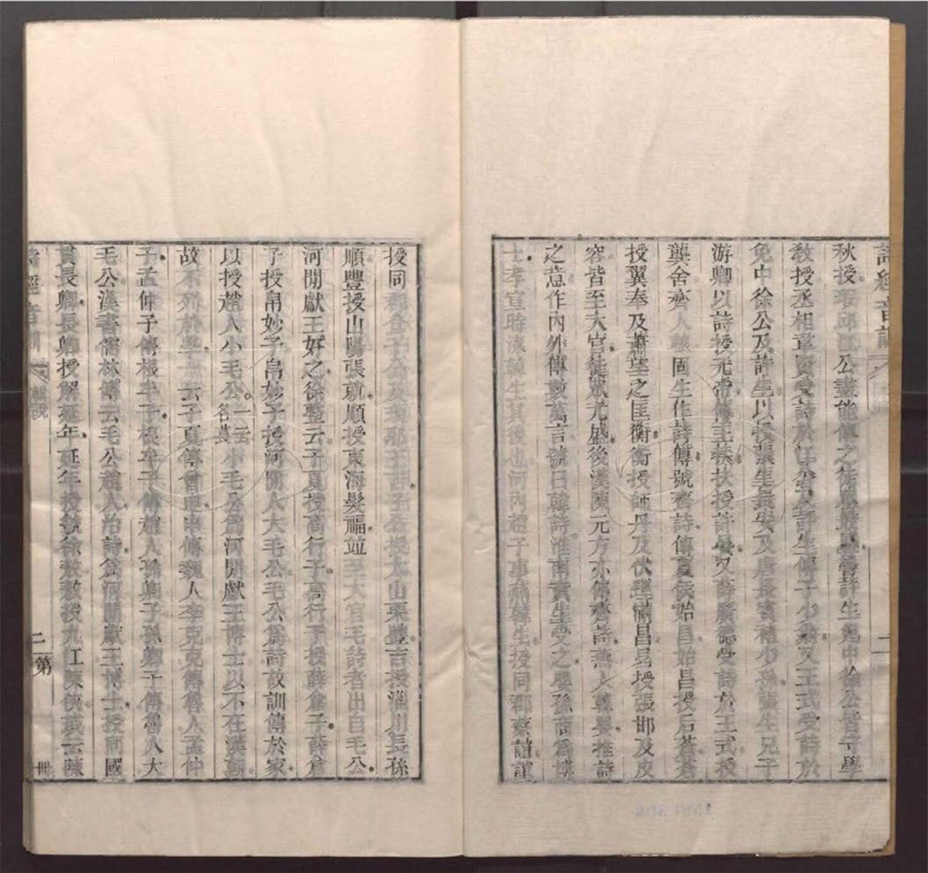 秋授瑕邱江公盡能傳之徒眾最盛魯許生免中徐公皆守學
教授丞相韋賢受詩於江公及許生傳子少翁又王式受詩於
免中徐公及許生以授張生長安及唐長賓褚少孫張生兄子
游卿以詩授元帝傳王扶扶授許晏又薛廣德受詩於王式授
龔舍齊人轅固生作詩傳號齊詩傳夏侯始昌始昌授后蒼蒼
授翼奉及蕭望之匡衡衡授師丹及伏理滿昌昌授張邯及皮
容皆至大官徒眾尤盛後漢陳元方亦傳齊詩燕人韓嬰推詩
之意作內外傳數萬言號曰韓詩淮南賁生受之嬰孫商爲博
士孝宣時涿韓生其後也河內趙子事燕韓生授同郡蔡誼誼
授同郡食子公及琅邪王吉子公授太山栗豐吉授淄川長孫
順豐授山陽張就順授東海髮福竝至大官毛詩者出自毛公
河閒獻王好之徐整云子夏授高行子高行子授薛倉子薛倉
子授帛妙子帛妙子授河閒人大毛公毛公爲詩故訓傳於家
以授趙人小毛公一云名萇小毛公爲河閒獻王博士以不在漢朝
故不列於學一云子夏傳曾申申傳魏人李克克傳魯人孟仲
子孟仲子傳根牟子根牟子傳趙人孫卿子孫卿子傳魯人大
毛公漢書儒林傳云毛公趙人治詩爲河閒獻王博士授同國
貫長卿長卿授解延年延年授虢徐敖敖授九江陳俠或云陳
詩經音訓 二 第 冊